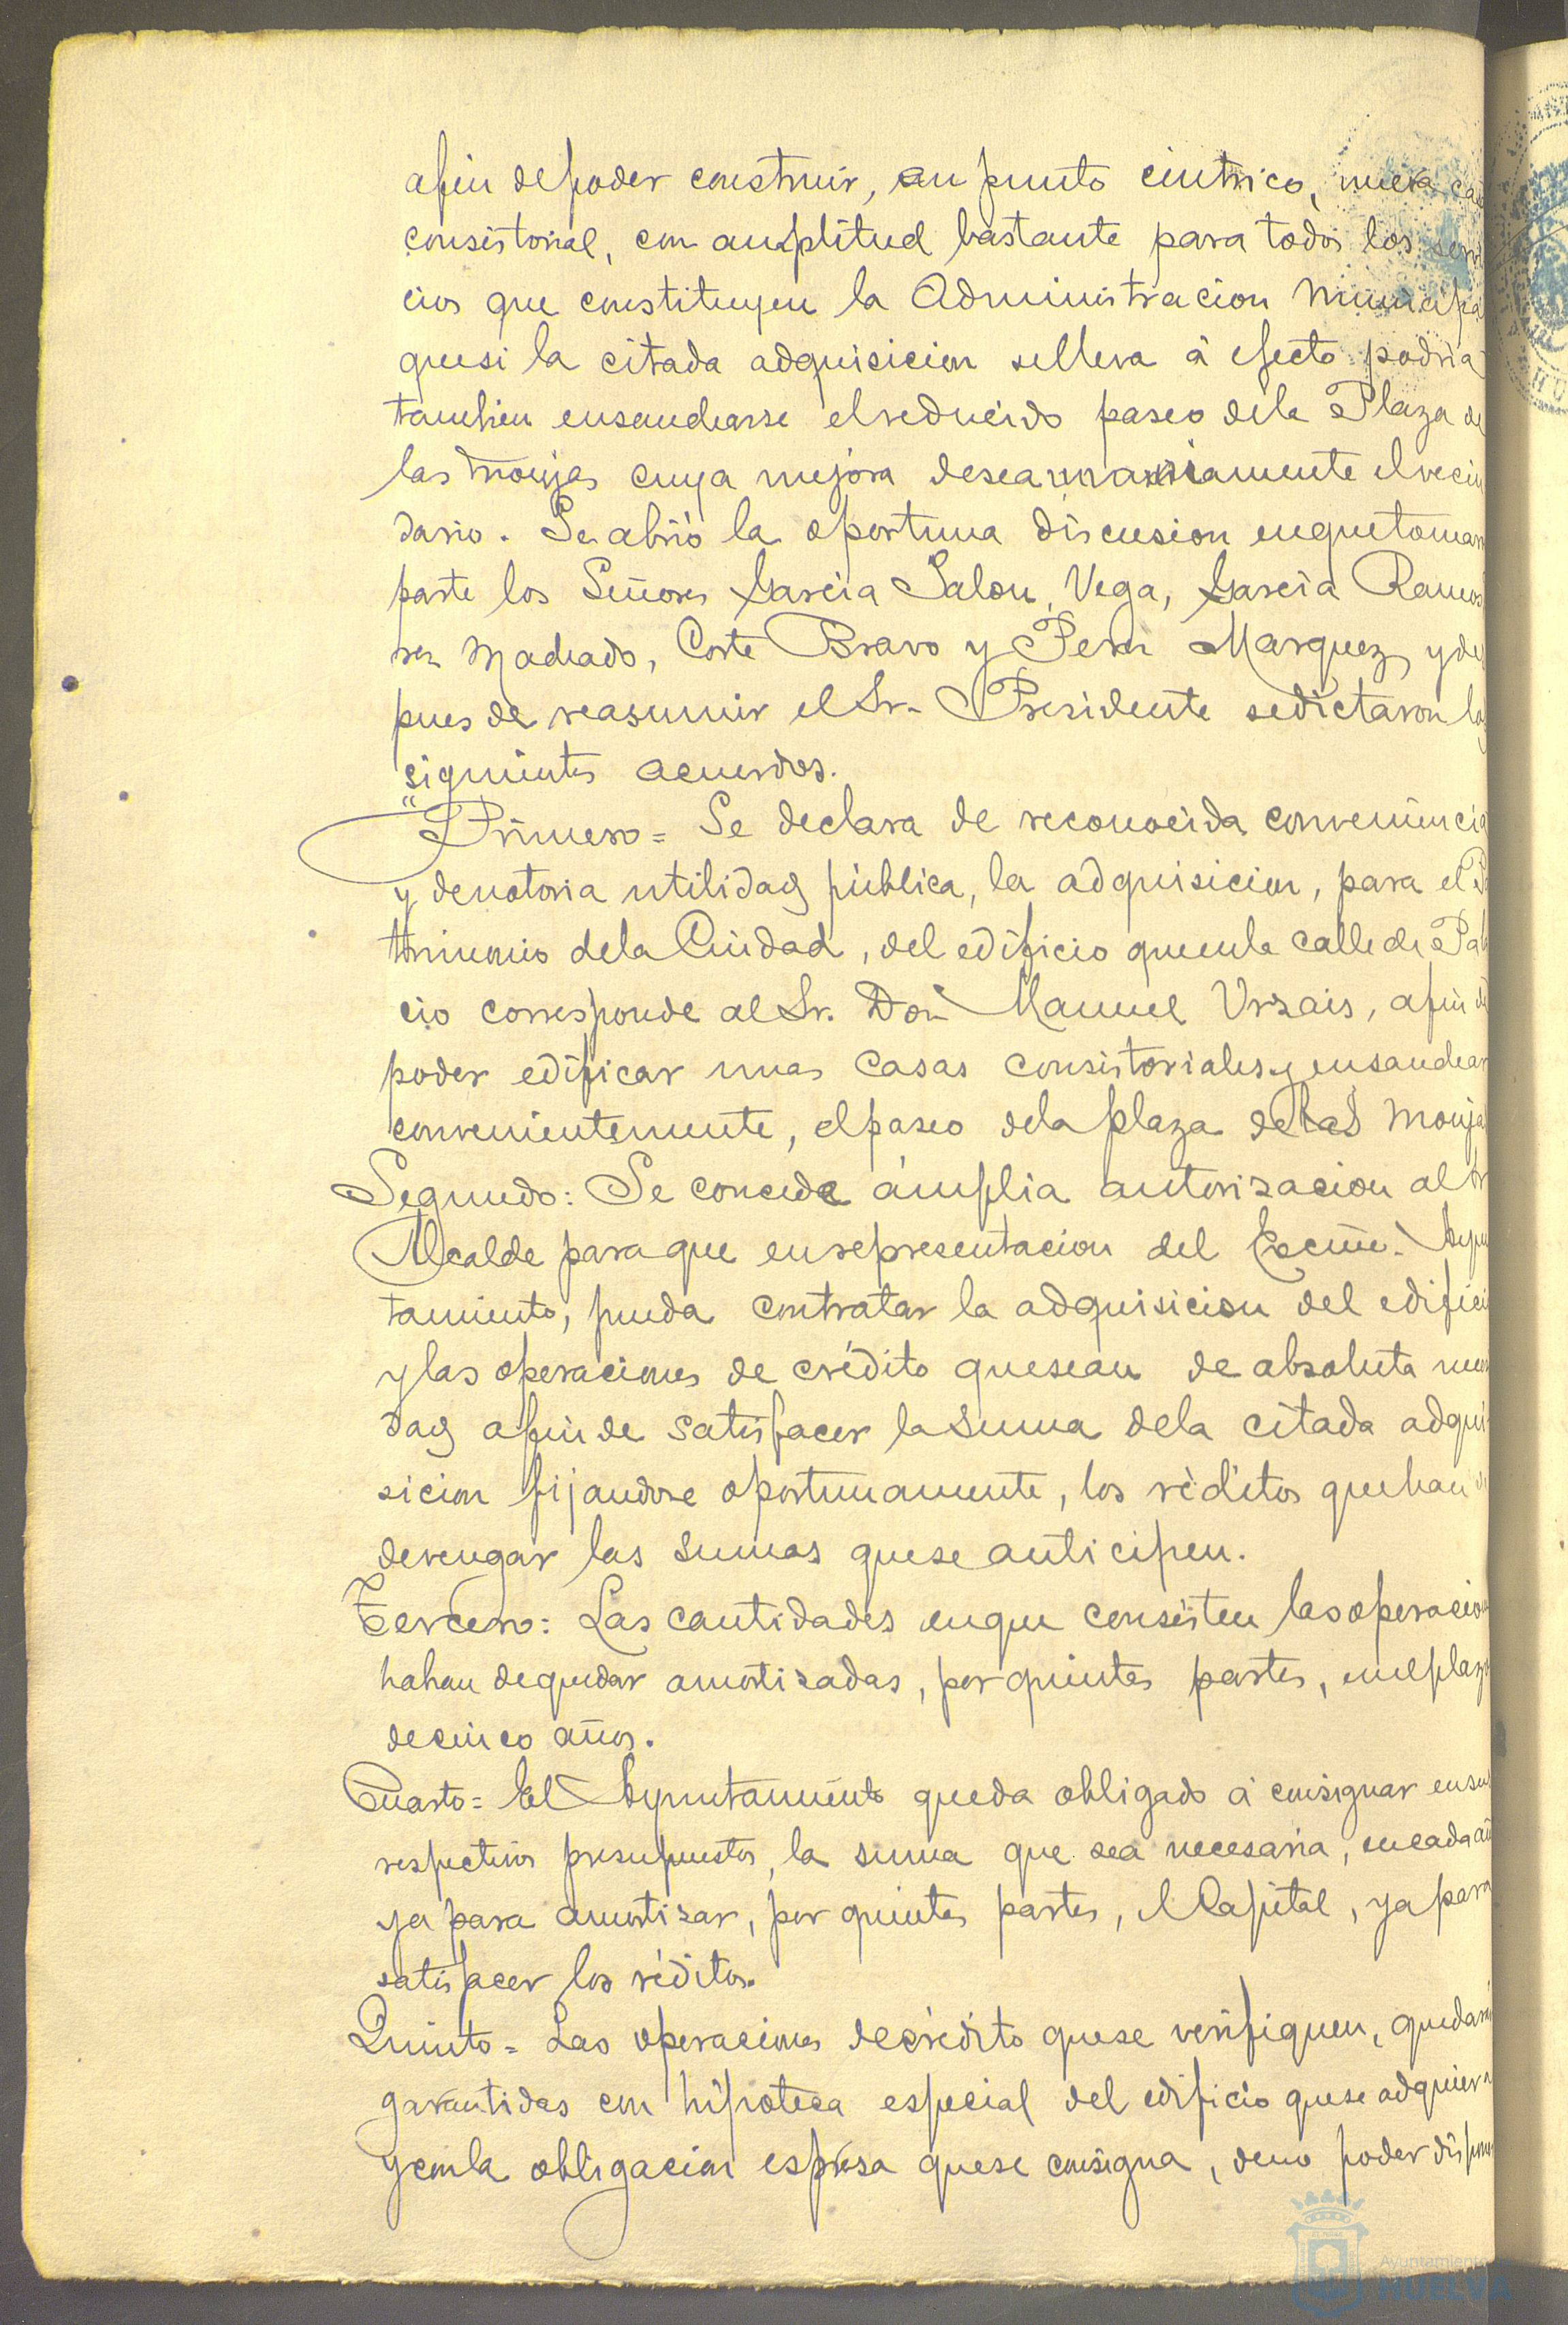 afin de poder construir, en punto céntrico, nueva ca
consistorial, con amplitud bastante para todos los servi
cios que constituyen la Administracion Municipa
que si la citada adquisicion se lleva á efecto podria
tambien ensancharse el reducido paseo de la Plaza de
las Monjas cuya mejora desea unanimamente el vecin
dario. Se abrió la oportuna discusion en que tomaron
parte los Señores Garcia Jalon, Vega, Garcia Ramos
Machado, Corte Bravo y Marquez, y des
pues de reasumir el Sr. Presidente se dictaron los
siguientes acuerdos.
"Primero = Se declara de reconocida conveniencia
y de notoria utilidad pública, la adquisicion, para el Pa
trimonio de la Ciudad, del edificio que en la calle de Pala
cio corresponde al Sr. Don Manuel Urzais, a fin de
poder edificar unas Casas Consistoriales y ensanchar
convenientemente, el paseo de la plaza de las Monjas
Segundo: Se concede ámplia autorizacion al Sr
Alcalde para que en representacion del Excmo. Ayun
tamiento, pueda contratar la adquisicion del edificio
y las operaciones de crédito que sean de absoluta nece
dad a fin de satisfacer la suma de la citada adqui
sicion fijandose oportunamente, los réditos que han de
devengar las sumas que se anticipen.
Tercero: Las cantidades en que consisten las operacion
haban de quedar amortizadas, por quintas partes, en el plazo
de cinco años.
Cuarto = El Ayuntamiento queda obligado á consignar en sus
respectivos presupuestos, la suma que sea necesaria, en cada añ
ya para amortizar, por quintas partes, el Capital, ya para
satisfacer los réditos.
Quinto = Las operaciones de crédito que se verifiquen, quedarán
garantidas con hipoteca especial del edificio que se adquiera
y con la obligacion espresa que se consigna, de no poder dispone
Ayuntamiento
HUELVA